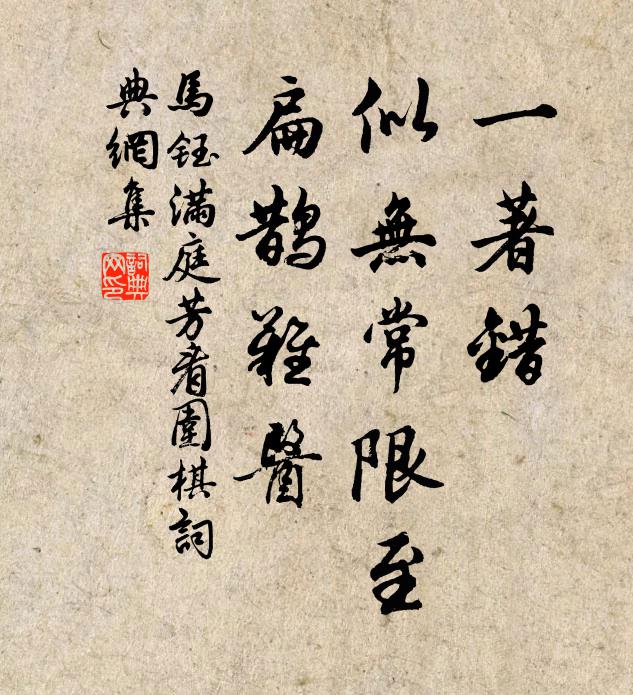 一著錯
似無常限至
扁鵲難醫
馬鈺滿庭芳看圍棋詞
典網集
詞典
网印